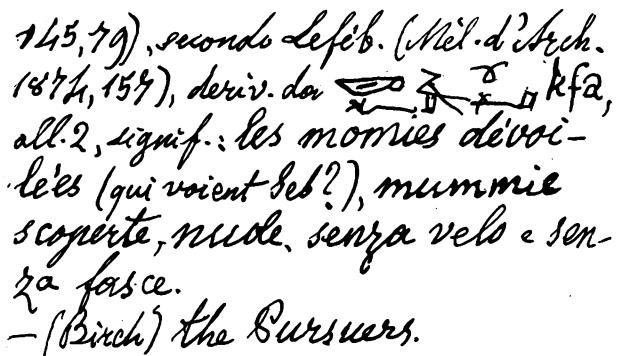 145,79), secondo Leféb. (Mél. d'Arch.
1874, 157), deriv. da kfa,
all. 2, signif.: les momies dévoi-
lées (qui voient Seb?), mummie
scoperte, nude, senza velo e sen-
za fasce.
— (Birch) the Pursuers.